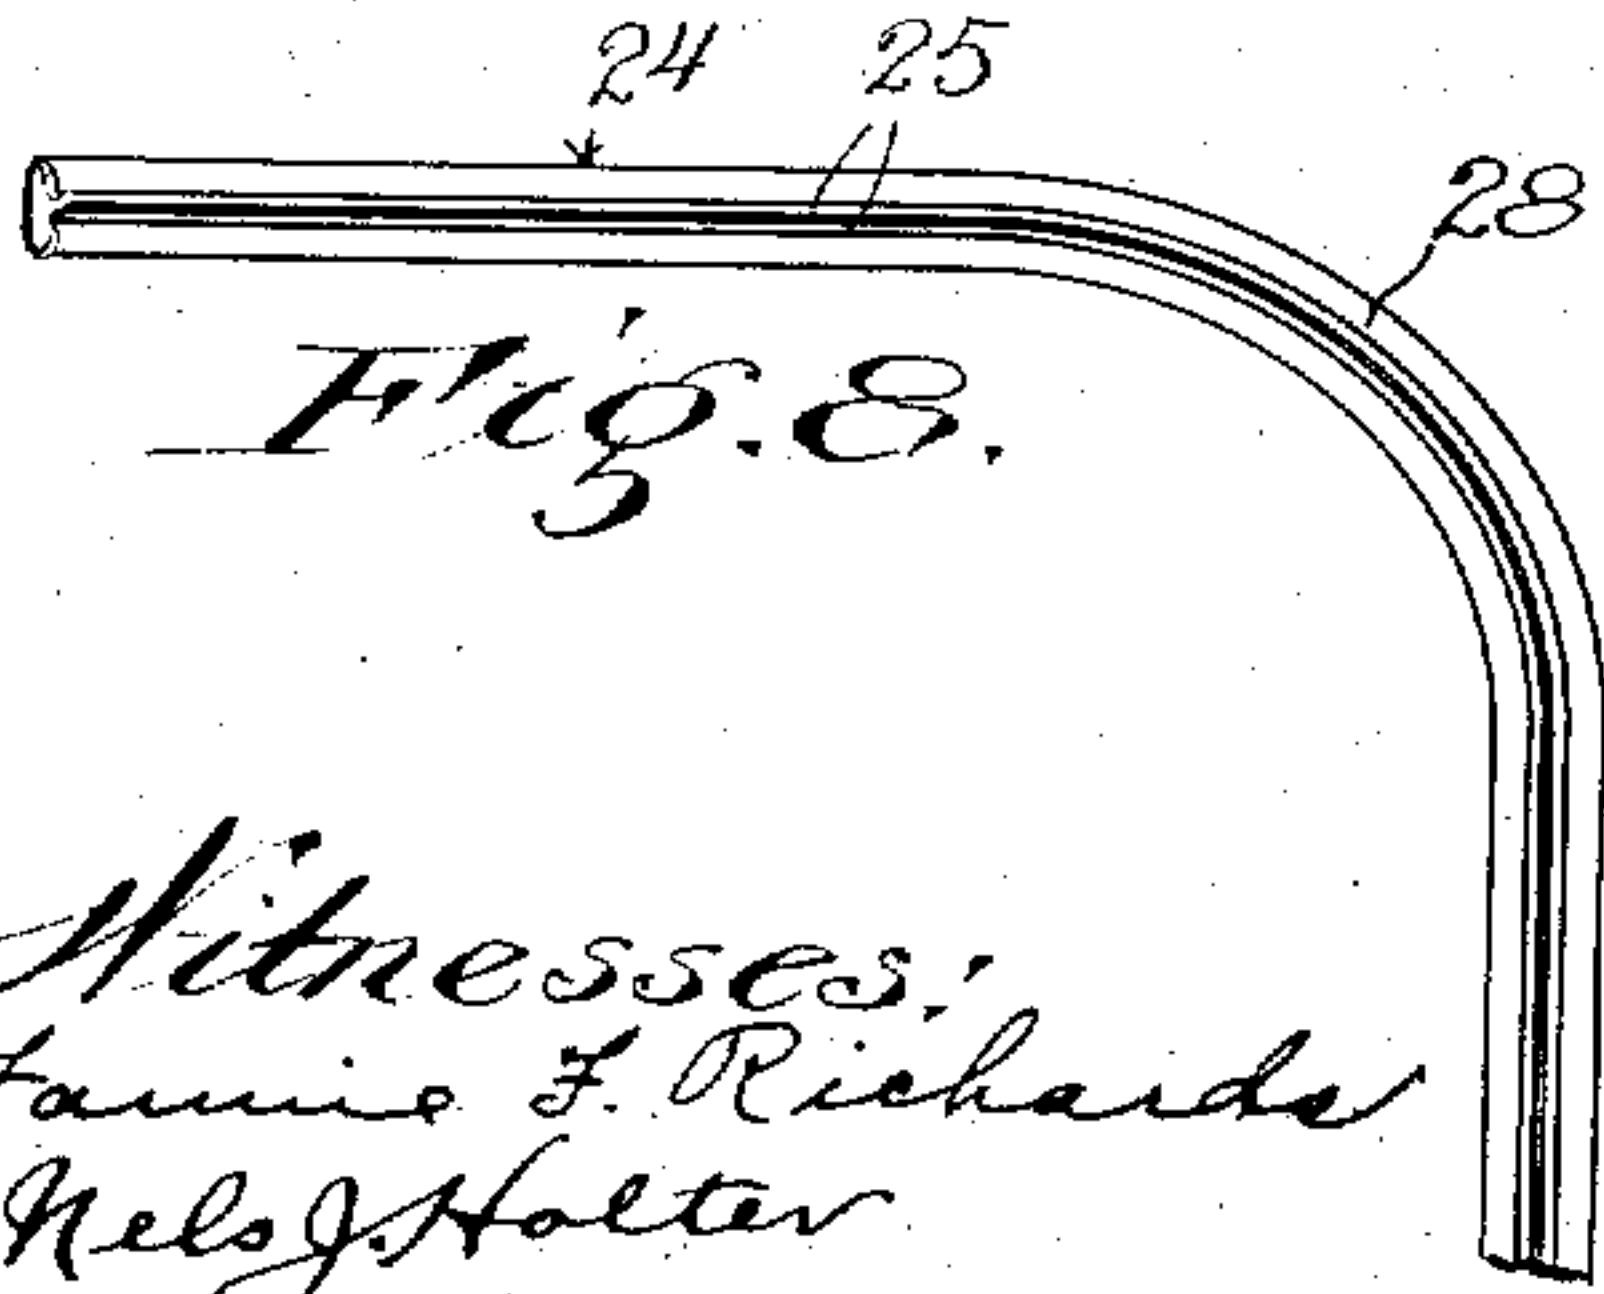 24 25
28
Fig. 8.
Witnesses:
Fannie F. Richards
Nels J. Holter